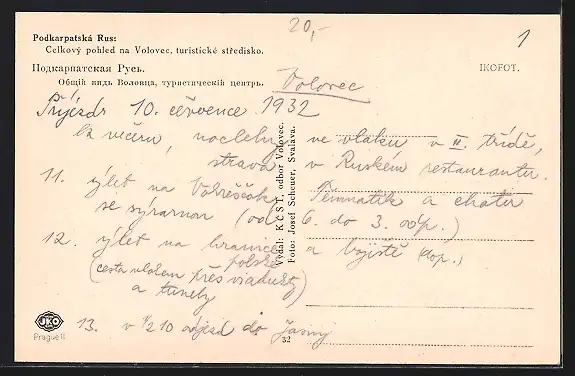 Podkarpatská Rus:
Celkový pohled na Volovec, turistické středisko.
Подкарпатская Русь.
Общій видъ Воловца, туристическій центръ.
20,-
1
IKOFOT.
Volovec
Příjezd 10. července 1932
k večeru, noclehy ve vlaku v II. třídě,
strava v Ruském restaurantu.
11. výlet na
se (od 6. do 3. odp.)
a chatu
12. výlet na hranice polské a bojiště (dop.)
(cesta vlakem přes viadukty
a tunely)
13. v 1/2 10 odjezd do Jasiny
Vydal: KČST, odbor Volovec.
Foto: Josef Scheuer, Svalava.
IKO
Prague II.
32